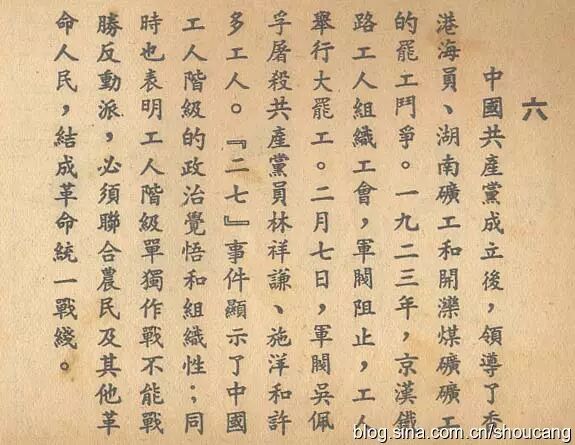 六
中國共產黨成立後，領導了香
港海員、湖南礦工和開灤煤礦礦工
的罷工鬥爭。一九二三年，京漢鐵
路工人組織工會，軍閥阻止，工人
舉行大罷工。二月七日，軍閥吳佩
孚屠殺共產黨員林祥謙、施洋和許
多工人。『二七』事件顯示了中國
工人階級的政治覺悟和組織性；同
時也表明工人階級單獨作戰不能戰
勝反動派，必須聯合農民及其他革
命人民，結成革命統一戰綫。
blog.sina.com.cn/shoucang